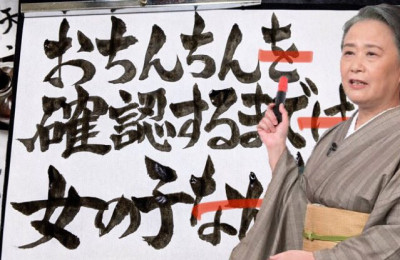 おちんちんを
確認するまでは
女の子なん